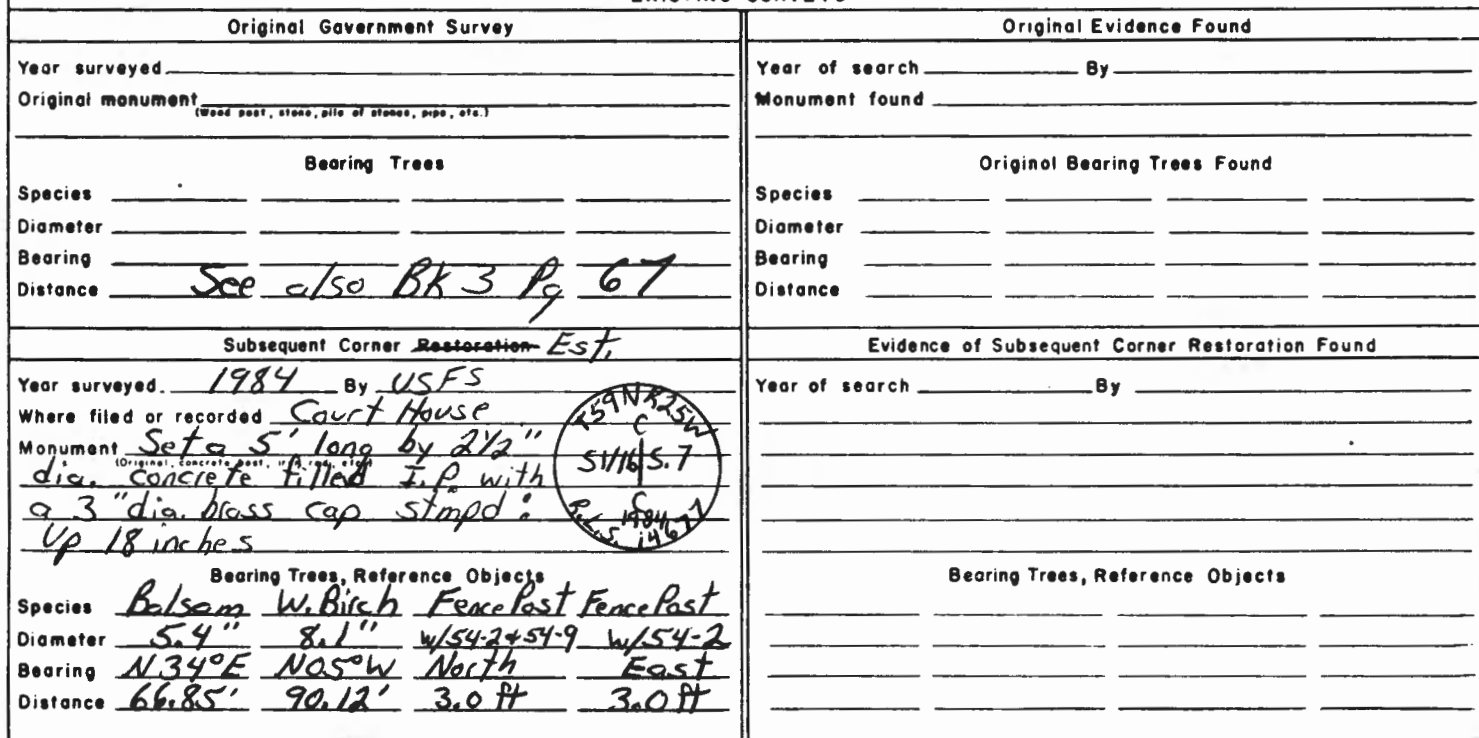 Original Government Survey
Year surveyed
Original monument
(Wood post, stone, pile of stones, pipe, etc.)
Bearing Trees
Species
Diameter
Bearing
Distance See also BK 3 Pg 67
Subsequent Corner Restoration Est.
Year surveyed. 1984 By USFS
Where filed or recorded Court House
Monument Set a 5' long by 2½"
dia. concrete filled I.P. with
a 3" dia. brass cap stmpd:
Up 18 inches
T59N R25W
C
S1/16 S.7
C
1984
R.L.S. 14677
Bearing Trees, Reference Objects
Species Balsam W. Birch Fence Post Fence Post
Diameter 5.4" 8.1" w/54-2+54-9 w/54-2
Bearing N34°E N05°W North East
Distance 66.85' 90.12' 3.0 ft 3.0 ft
Original Evidence Found
Year of search By
Monument found
Original Bearing Trees Found
Species
Diameter
Bearing
Distance
Evidence of Subsequent Corner Restoration Found
Year of search By
Bearing Trees, Reference Objects